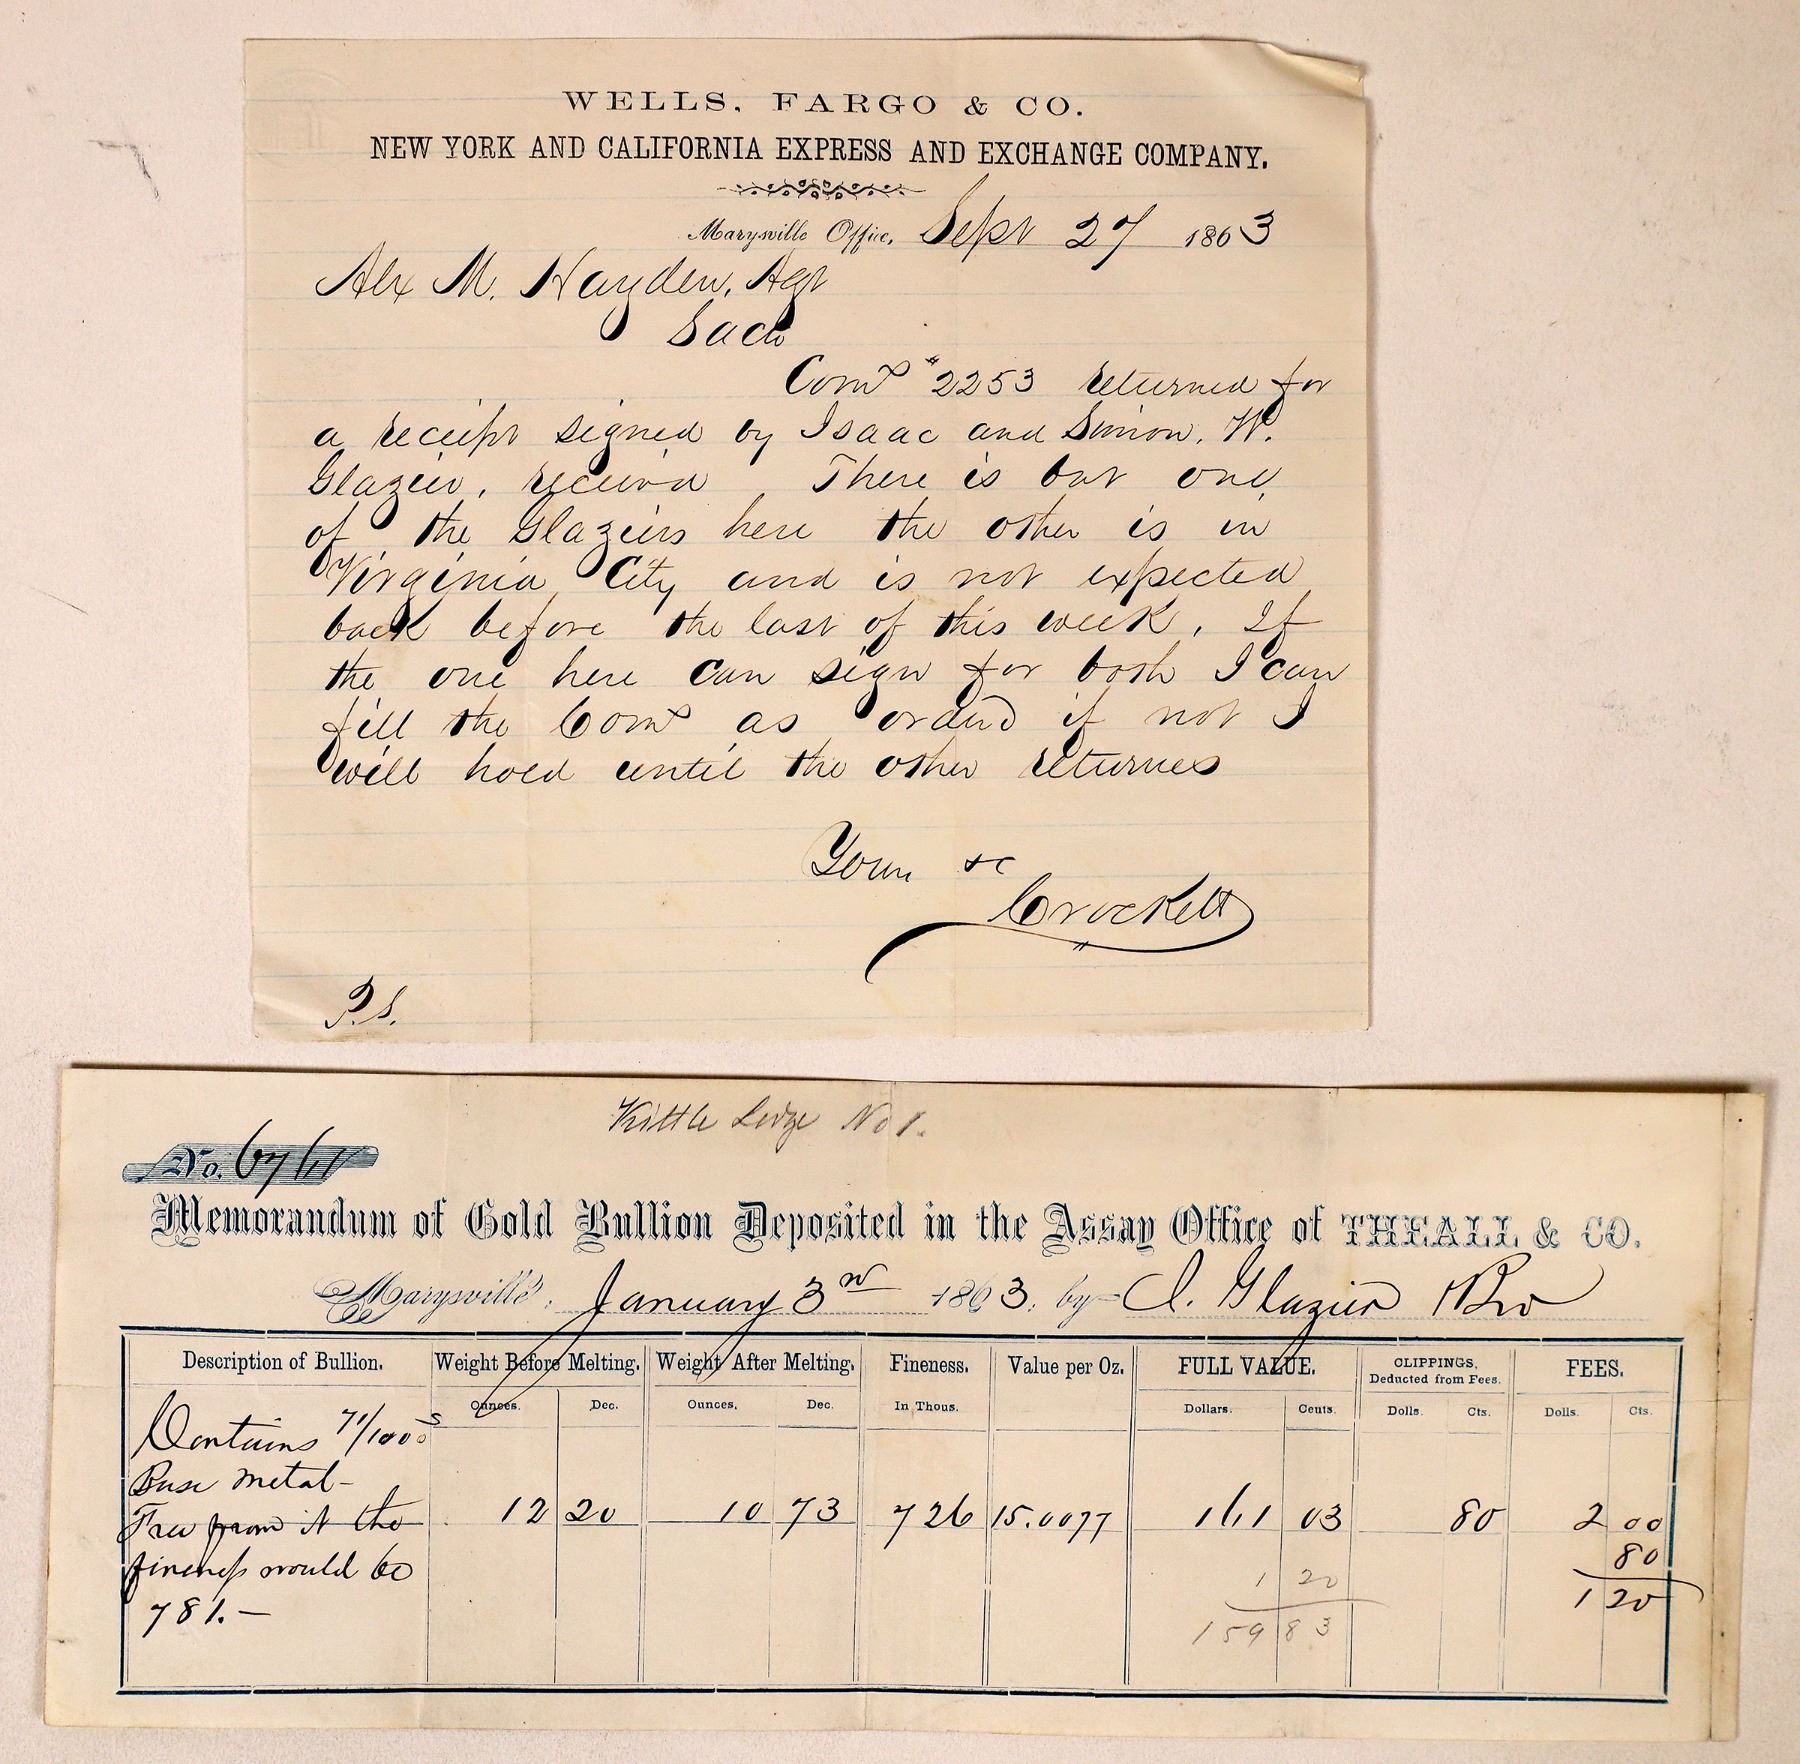 WELLS, FARGO & CO.
NEW YORK AND CALIFORNIA EXPRESS AND EXCHANGE COMPANY.
Marysville Office, Sept 27 1863
Alex M. Hayden, Agt
Saco
Comn #2253 returned for
a receipt signed by Isaac and Simon. W.
Glazier, received There is but one
of the Glaziers here the other is in
Virginia City and is not expected
back before the last of this week. If
the one here can sign for both I can
fill the Comn as ordered if not I
will hold until the other returnes
Yours &c
Crockett
P.S.
Kittle Ledge No 1.
No. 6761
Memorandum of Gold Bullion Deposited in the Assay Office of THEALL & CO.
Marysville, January 3rd 1863, by I. Glazier & Bro
Description of Bullion. Weight Before Melting. Weight After Melting. Fineness. Value per Oz. FULL VALUE. CLIPPINGS, Deducted from Fees. FEES.
Ounces. Dec. Ounces. Dec. In Thous. Dollars. Cents. Dolls. Cts. Dolls. Cts.
Contains 71/1000s
Base metal -
Free from it the 12 20 10 73 726 15.0077 161 03 80 2 00
fineness would be 80
781. - 1 20 1 20
159 83